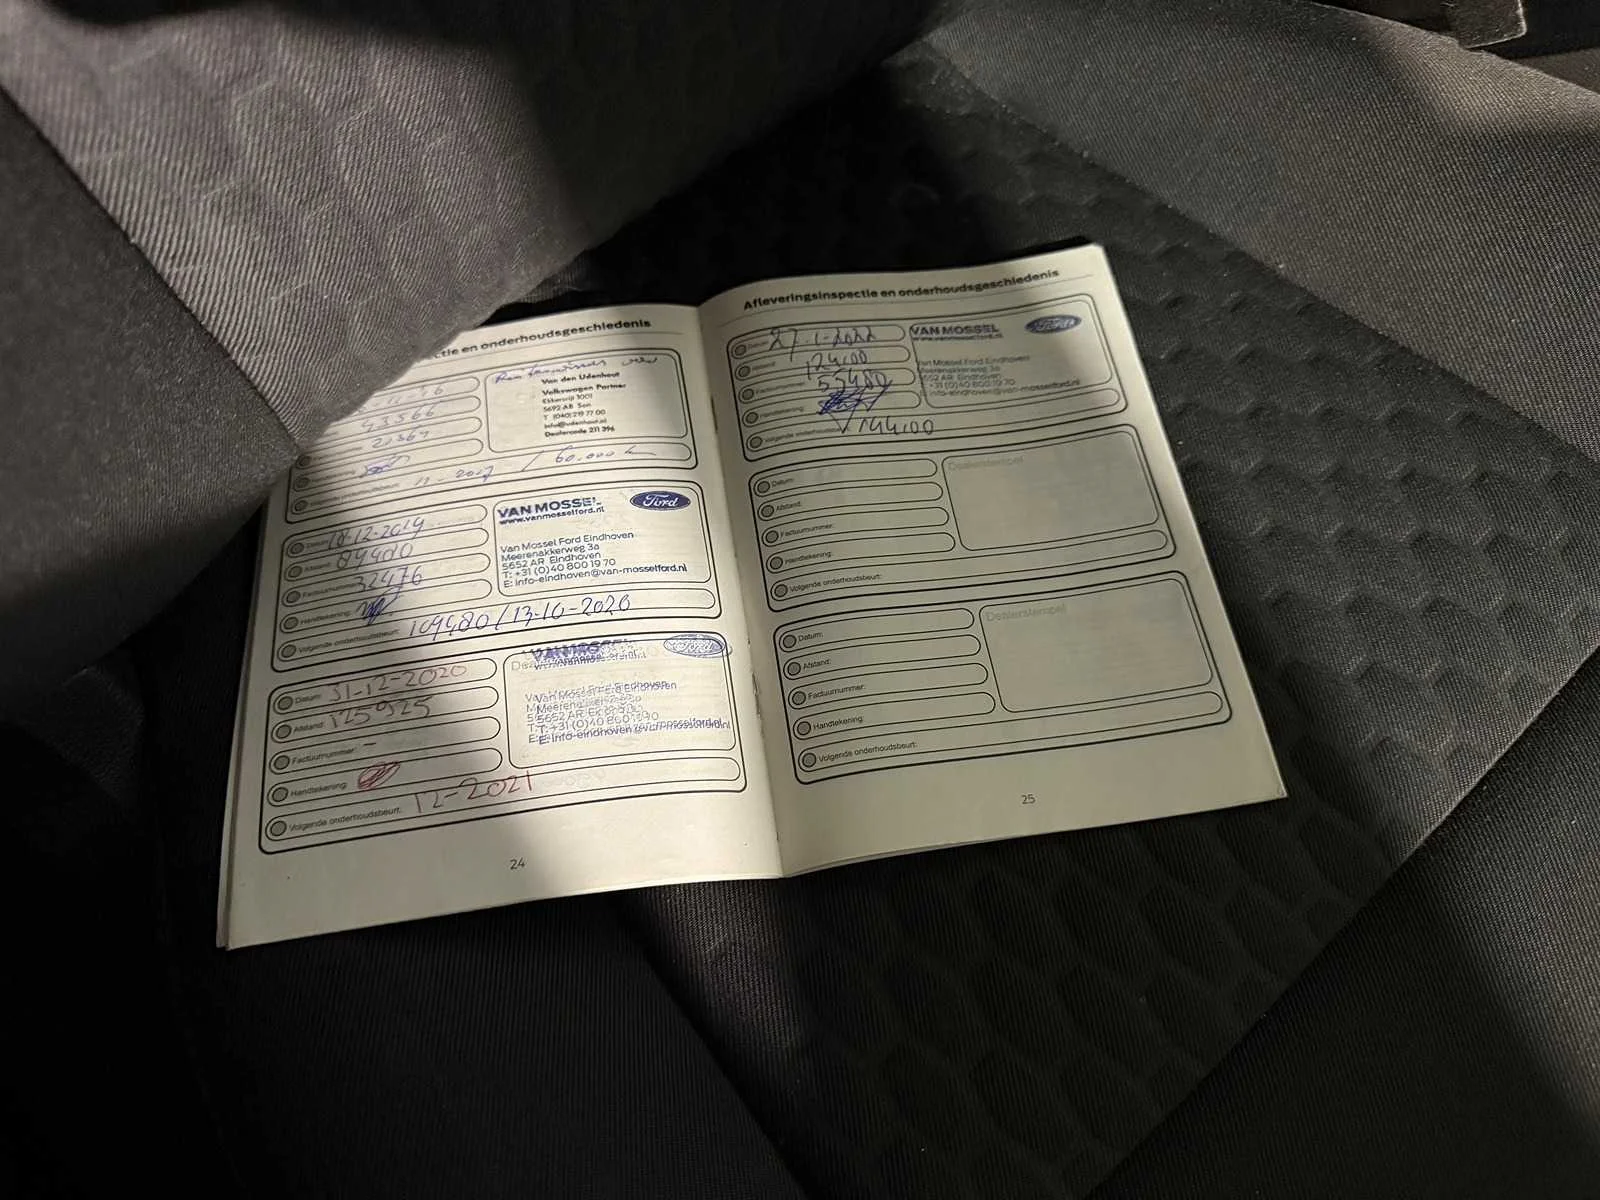 ctie en onderhoudsgeschiedenis
Van den Udenhout
Volkswagen Partner
Ekkersrijt 1001
5692 AB Son
T (040) 219 77 00
info@udenhout.nl
Dealercode 211 396
43366
21364
11-2017 / 60.000
Datum: 18-12-2019
Afstand: 89480
Factuurnummer: 32476
Handtekening:
Volgende onderhoudsbeurt: 109480/13-10-2020
VAN MOSSEL
www.vanmosselford.nl
Ford
Van Mossel Ford Eindhoven
Meerenakkerweg 3a
5652 AR Eindhoven
T: +31 (0)40 800 19 70
E: info-eindhoven@van-mosselford.nl
Datum: 31-12-2020
Afstand: 125925
Factuurnummer: -
Handtekening:
Volgende onderhoudsbeurt: 12-2021
VAN MOSSEL
Ford
Van Mossel Ford Eindhoven
5652 AR
E: info-eindhoven@van-mosselford.nl
24
Afleveringsinspectie en onderhoudsgeschiedenis
Datum: 27-1-2022
Afstand: 124100
Factuurnummer: 55480
Handtekening:
Volgende onderhoudsbeurt: 144100
VAN MOSSEL
www.vanmosselford.nl
Ford
Van Mossel Ford Eindhoven
Meerenakkerweg 3a
5652 AR Eindhoven
T: +31 (0)40 800 19 70
E: info-eindhoven@van-mosselford.nl
Datum:
Afstand:
Factuurnummer:
Handtekening:
Volgende onderhoudsbeurt:
Dealerstempel
Datum:
Afstand:
Factuurnummer:
Handtekening:
Volgende onderhoudsbeurt:
Dealerstempel
25